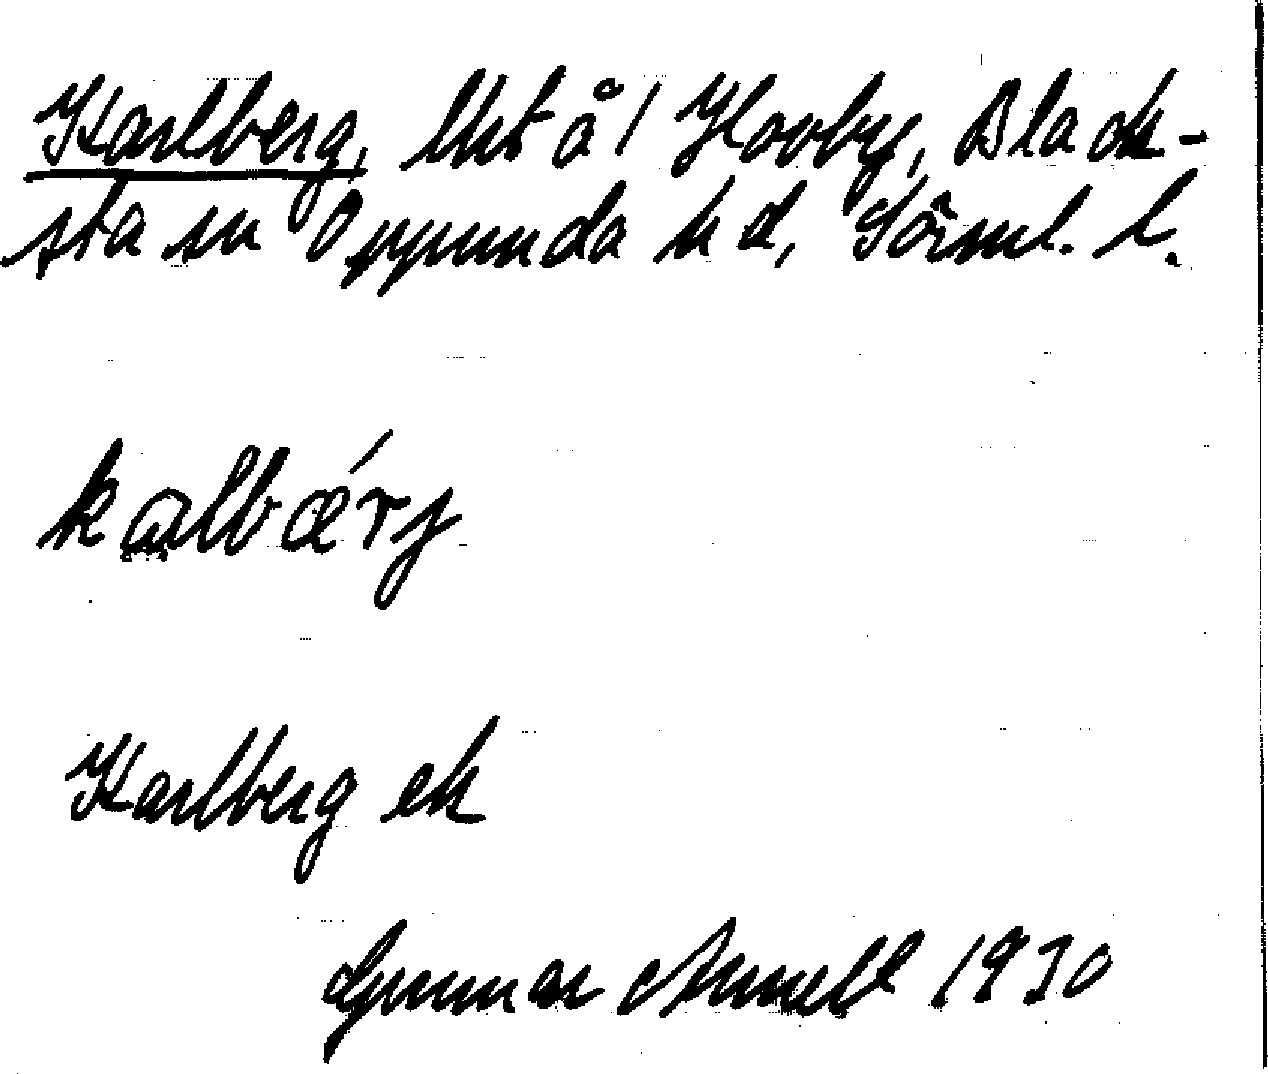 Karlberg, lht å 1 Hovby, Black-
sta sn Oppunda hd, Sörml. l.
kalbǽrj
Karlberg ek
Gunnar Arnell 1930